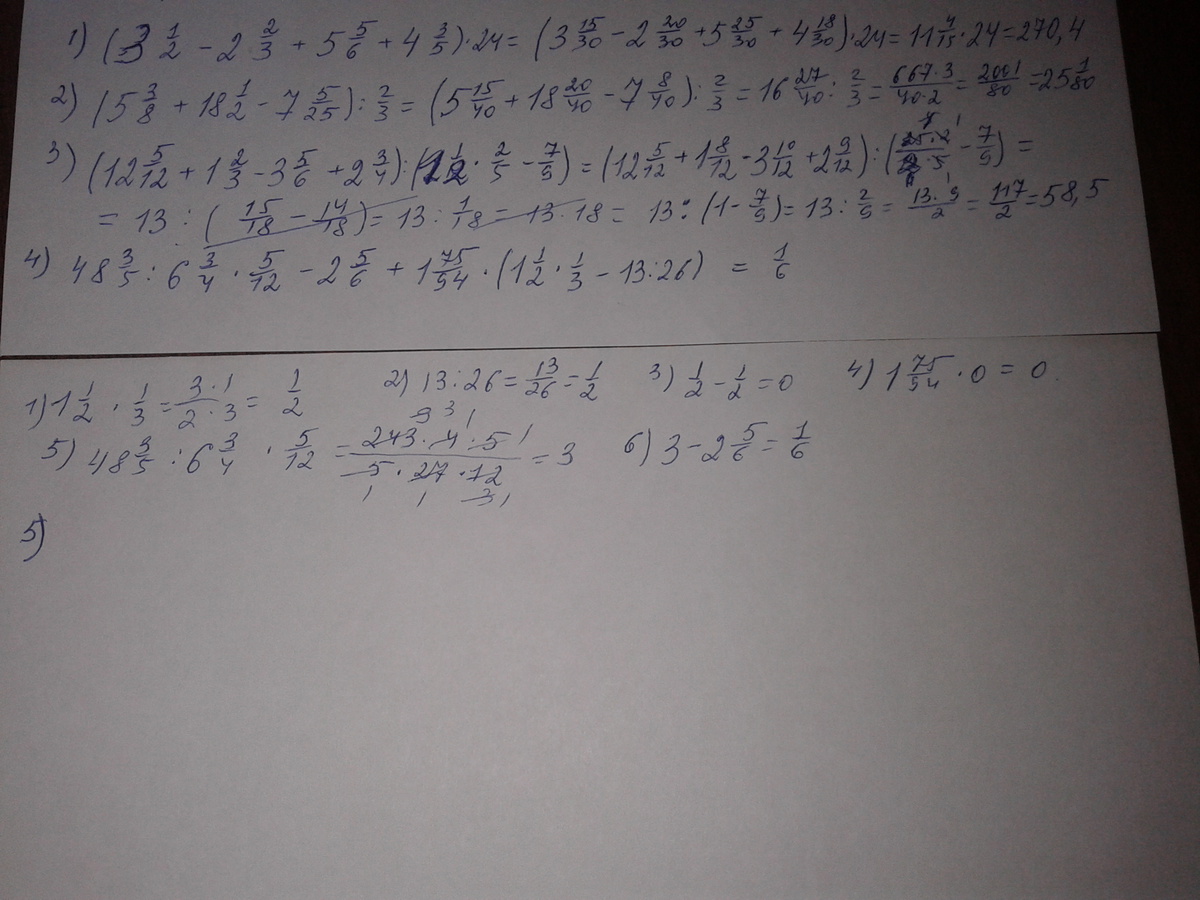 1) (3 1/2 - 2 2/3 + 5 5/6 + 4 3/5) · 24 = (3 15/30 - 2 20/30 + 5 25/30 + 4 18/30) · 24 = 11 4/15 · 24 = 270,4
2) (5 3/8 + 18 1/2 - 7 5/25) : 2/3 = (5 15/40 + 18 20/40 - 7 8/40) : 2/3 = 16 27/40 : 2/3 = 667·3/40·2 = 2001/80 = 25 1/80
3) (12 5/12 + 1 2/3 - 3 5/6 + 2 3/4) : ( · 2/5 - 7/9) = (12 5/12 + 1 8/12 - 3 10/12 + 2 9/12) : ( - 7/9) =
= 13 : (15/18 - 14/18) = 13 : 1/18 = 13 · 18 = 13 : (1 - 7/9) = 13 : 2/9 = 13·9/2 = 117/2 = 58,5
4) 48 3/5 : 6 3/4 · 5/12 - 2 5/6 + 1 75/94 · (1 1/2 · 1/3 - 13 : 26) = 1/6
1) 1 1/2 · 1/3 = 3·1/2·3 = 1/2 2) 13 : 26 = 13/26 = 1/2 3) 1/2 - 1/2 = 0 4) 1 75/94 · 0 = 0
5) 48 3/5 : 6 3/4 · 5/12 = 243·4·5/5·27·12 = 3 6) 3 - 2 5/6 = 1/6
5)